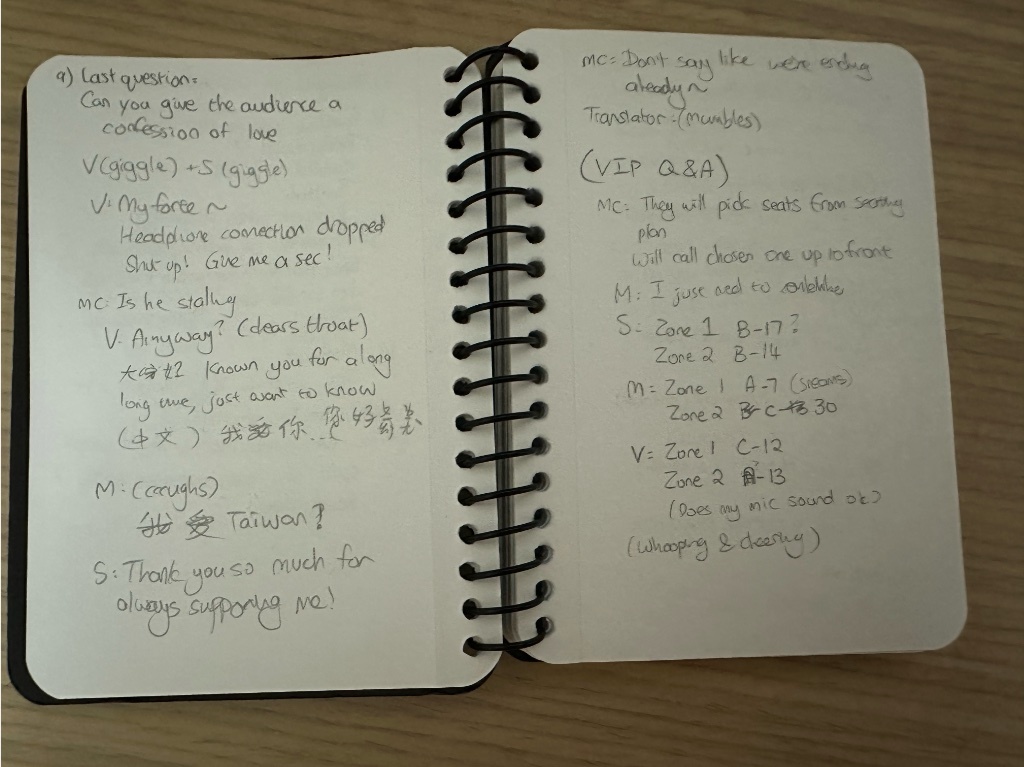 9) Last question:
Can you give the audience a
confession of love
V (giggle) + S (giggle)
V: My forte ~
Headphone connection dropped
Shut up! Give me a sec!
MC: Is he stalling
V: Ainyway? (clears throat)
Known you for a long
long time, just want to know
(中文) 我愛你... 你好漂亮
M: (coughs)
我愛 Taiwan?
S: Thank you so much for
always supporting me!
MC: Don't say like we're ending
already ~
Translator: (mumbles)
(VIP Q&A)
MC: They will pick seats from seating
plan
Will call chosen one up to front
M: I just need to
S: Zone 1 B-17?
Zone 2 B-14
M: Zone 1 A-7 (screams)
Zone 2 C-30
V: Zone 1 C-12
Zone 2 A-13
(Does my mic sound ok?)
(Whooping & cheering)